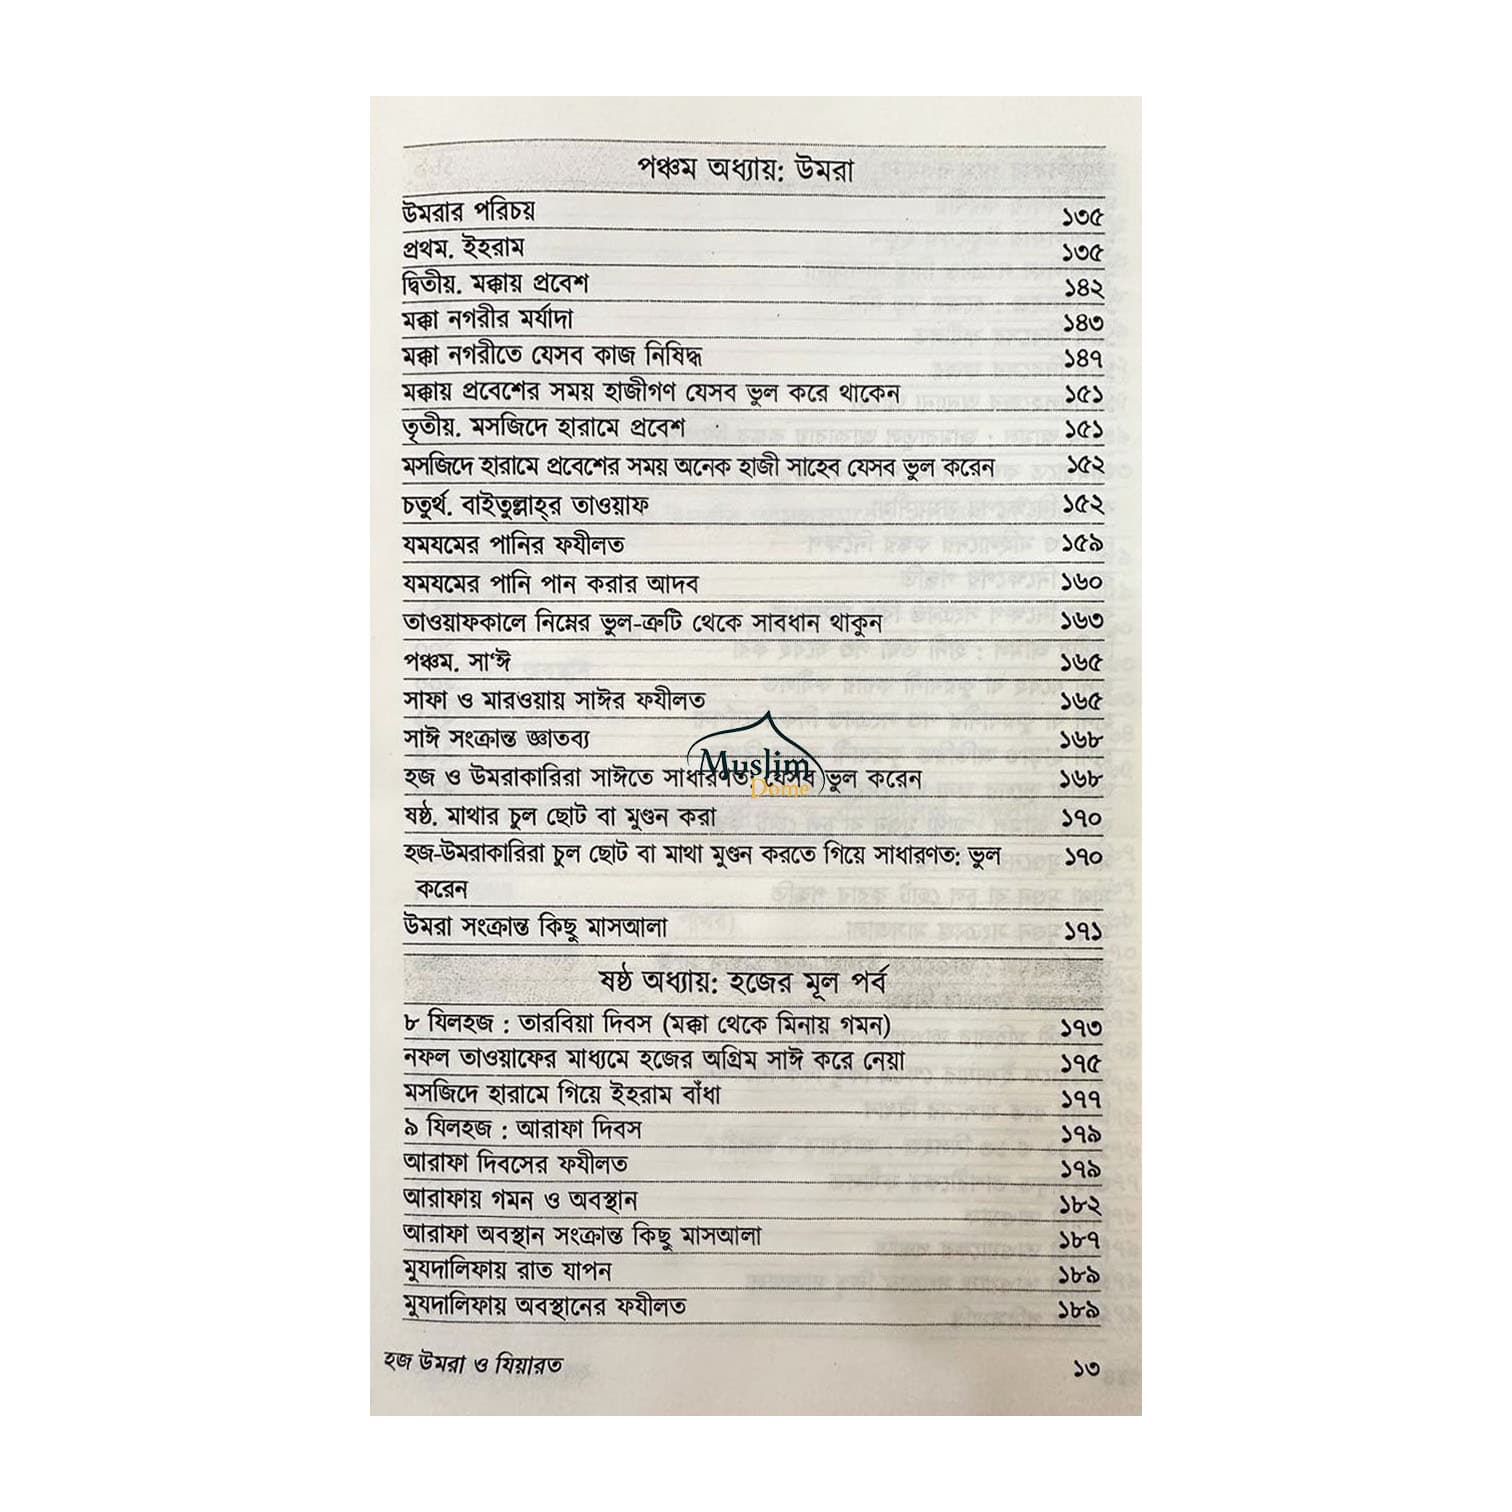 পঞ্চম অধ্যায়: উমরা
উমরার পরিচয় ১৩৫
প্রথম. ইহরাম ১৩৫
দ্বিতীয়. মক্কায় প্রবেশ ১৪২
মক্কা নগরীর মর্যাদা ১৪৩
মক্কা নগরীতে যেসব কাজ নিষিদ্ধ ১৪৭
মক্কায় প্রবেশের সময় হাজীগণ যেসব ভুল করে থাকেন ১৫১
তৃতীয়. মসজিদে হারামে প্রবেশ ১৫১
মসজিদে হারামে প্রবেশের সময় অনেক হাজী সাহেব যেসব ভুল করেন ১৫২
চতুর্থ. বাইতুল্লাহ্‌র তাওয়াফ ১৫২
যমযমের পানির ফযীলত ১৫৯
যমযমের পানি পান করার আদব ১৬০
তাওয়াফকালে নিম্নের ভুল-ত্রুটি থেকে সাবধান থাকুন ১৬৩
পঞ্চম. সা‘ঈ ১৬৫
সাফা ও মারওয়ায় সাঈর ফযীলত ১৬৫
সাঈ সংক্রান্ত জ্ঞাতব্য ১৬৮
Muslim
হজ ও উমরাকারিরা সাঈতে সাধারণত: যেসব ভুল করেন ১৬৮
Dome
ষষ্ঠ. মাথার চুল ছোট বা মুণ্ডন করা ১৭০
হজ-উমরাকারিরা চুল ছোট বা মাথা মুণ্ডন করতে গিয়ে সাধারণত: ভুল ১৭০
করেন
উমরা সংক্রান্ত কিছু মাসআলা ১৭১
ষষ্ঠ অধ্যায়: হজের মূল পর্ব
৮ যিলহজ : তারবিয়া দিবস (মক্কা থেকে মিনায় গমন) ১৭৩
নফল তাওয়াফের মাধ্যমে হজের অগ্রিম সাঈ করে নেয়া ১৭৫
মসজিদে হারামে গিয়ে ইহরাম বাঁধা ১৭৭
৯ যিলহজ : আরাফা দিবস ১৭৯
আরাফা দিবসের ফযীলত ১৭৯
আরাফায় গমন ও অবস্থান ১৮২
আরাফা অবস্থান সংক্রান্ত কিছু মাসআলা ১৮৭
মুযদালিফায় রাত যাপন ১৮৯
মুযদালিফায় অবস্থানের ফযীলত ১৮৯
হজ উমরা ও যিয়ারত ১৩